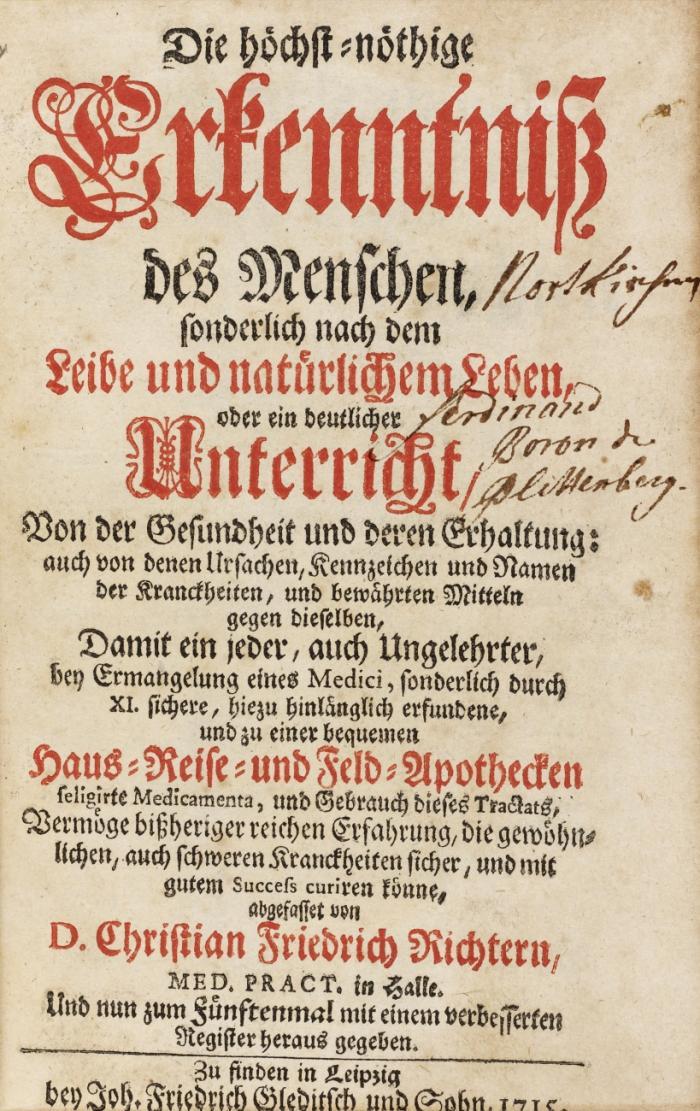 Die höchst-nöthige
Erkenntniß
des Menschen, Nortkirchen
sonderlich nach dem
Leibe und natürlichem Leben,
oder ein deutlicher Ferdinand
Unterricht, Boron de
Plettenberg.
Von der Gesundheit und deren Erhaltung:
auch von denen Ursachen, Kennzeichen und Namen
der Kranckheiten, und bewährten Mitteln
gegen dieselben,
Damit ein jeder, auch Ungelehrter,
bey Ermangelung eines Medici, sonderlich durch
XI. sichere, hiezu hinlänglich erfundene,
und zu einer bequemen
Haus-Reise-und Feld-Apothecken
seligirte Medicamenta, und Gebrauch dieses Tractats,
Vermöge bißheriger reichen Erfahrung, die gewöhn-
lichen, auch schweren Kranckheiten sicher, und mit
gutem Success curiren könne,
abgefasset von
D. Christian Friedrich Richtern,
MED. PRACT. in Halle.
Und nun zum Fünftenmal mit einem verbesserten
Register heraus gegeben.
Zu finden in Leipzig
bey Joh. Friedrich Gleditsch und Sohn. 1715.